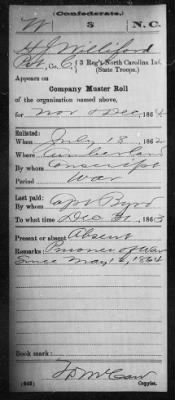 (Confederate.)
W 3 N.C.
H J Williford
Pvt, Co. C, 3 Reg't North Carolina Inf.
(State Troops.)
Appears on
Company Muster Roll
of the organization named above,
for Nov & Dec, 1864
Enlisted:
When July 18, 1862
Where Cumberland
By whom Conscript
Period War
Last paid:
By whom Capt Byrd
To what time Dec 31, 1863
Present or absent Absent
Remarks: Prisoner of War
Since May 12, 1864
Book mark:
McCaw
(642) Copyist.